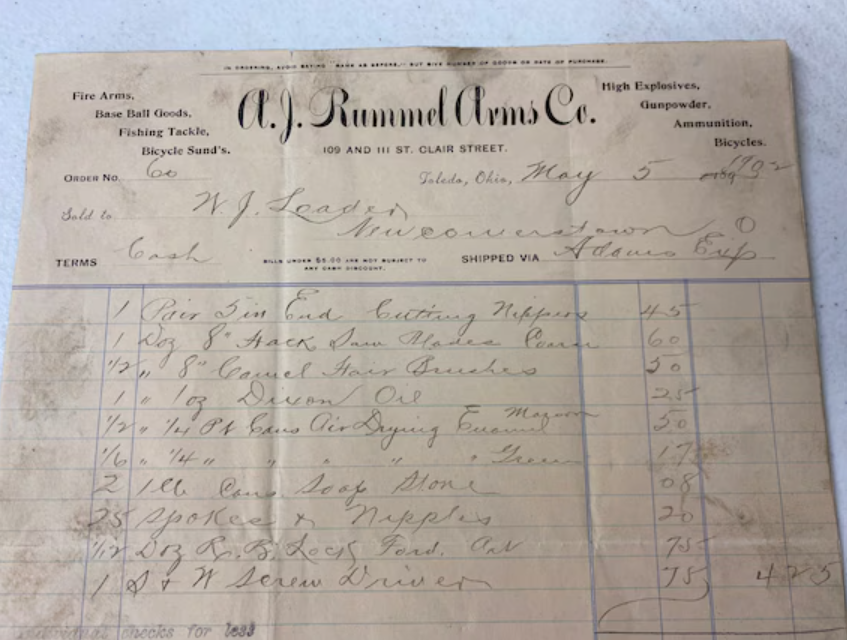 IN ORDERING, AVOID SAYING "SAME AS BEFORE," BUT GIVE NUMBER OF GOODS OR DATE OF PURCHASE.
Fire Arms,
Base Ball Goods,
Fishing Tackle,
Bicycle Sund's.
A.J. Rummel Arms Co.
109 AND 111 ST. CLAIR STREET.
High Explosives,
Gunpowder,
Ammunition,
Bicycles.
ORDER No. 60
Toledo, Ohio, May 5 1902
Sold to W. J. Leader
Newcomerstown O
TERMS Cash
BILLS UNDER $5.00 ARE NOT SUBJECT TO
ANY CASH DISCOUNT.
SHIPPED VIA Adams Exp
1 Pair 5 in End Cutting Nippers 45
1 Doz 8" Hack Saw Blades Coarse 60
1/2 " 8" Camel Hair Brushes 50
1 " 1oz Dixon Oil 25
1/2 " 1/4 Pt Cans Air Drying Enamel Maroon 50
1/6 " 1/4 " " " " " Green 17
2 1lb Cans Soap Stone 08
25 Spokes & Nipples 20
1/12 Doz R. B. Lock 75
1 S & W Screw Driver 75 425
checks for less